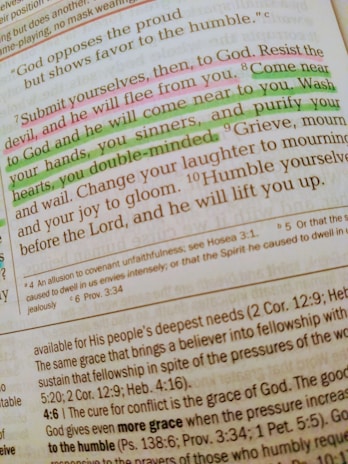 ing but does another.
ame-playing, no mask wearing
"God opposes the proud
but shows favor to the humble."c
7Submit yourselves, then, to God. Resist the
devil, and he will flee from you. 8Come near
to God and he will come near to you. Wash
your hands, you sinners, and purify your
hearts, you double-minded. 9Grieve, mourn
and wail. Change your laughter to mourning
and your joy to gloom. 10Humble yourselve
before the Lord, and he will lift you up.
a 4 An allusion to covenant unfaithfulness; see Hosea 3:1. b 5 Or that the s
caused to dwell in us envies intensely; or that the Spirit he caused to dwell in u
jealously c 6 Prov. 3:34
available for His people's deepest needs (2 Cor. 12:9; Heb
The same grace that brings a believer into fellowship with
sustain that fellowship in spite of the pressures of the wo
5:20; 2 Cor. 12:9; Heb. 4:16).
4:6 | The cure for conflict is the grace of God. The good
God gives even more grace when the pressure increas
to the humble (Ps. 138:6; Prov. 3:34; 1 Pet. 5:5). Go
responsive to the prayers of those who humbly reque